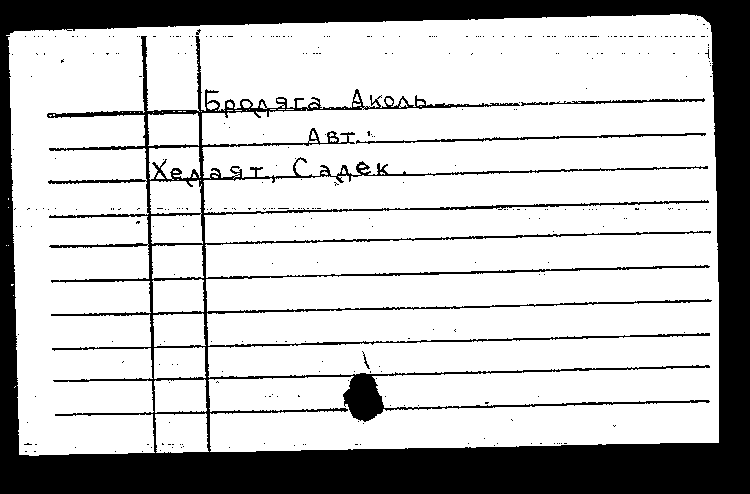 Бродяга Аколь
Авт.:
Хедаят, Садек.